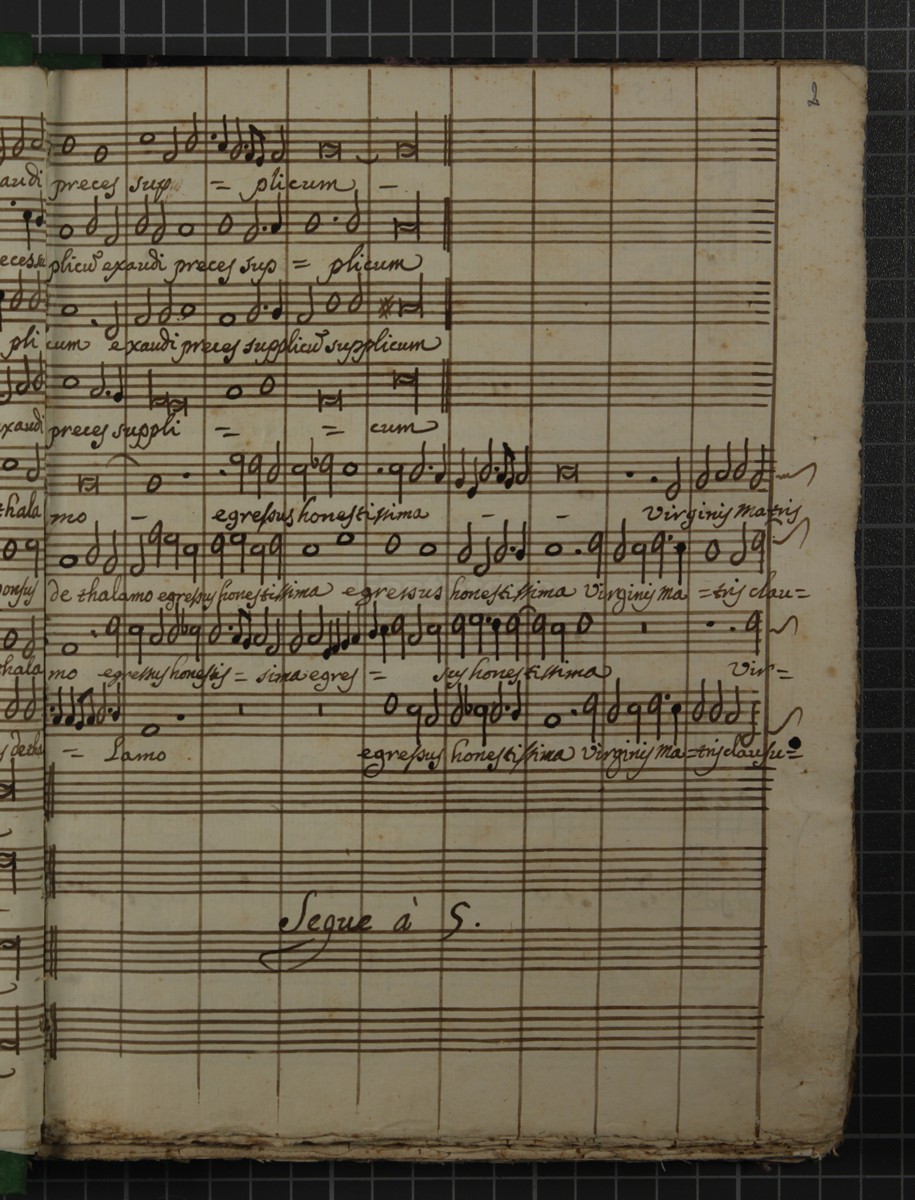 2
audi preces sup = plicum -
plicū exaudi preces sup = plicum
pli cum exaudi preces supplicū supplicum
exaudi preces suppli = = cum
thala mo - egressus honestissima - - Virginis Matris
de thalamo egressus honestissima egressus honestissima Virginis Ma =tris clau=
thala mo egressus honestis = sima egres = sus honestissima Vir=
= Lamo egressus honestissima Virginis Ma=tris clausu=
Segue à 5.